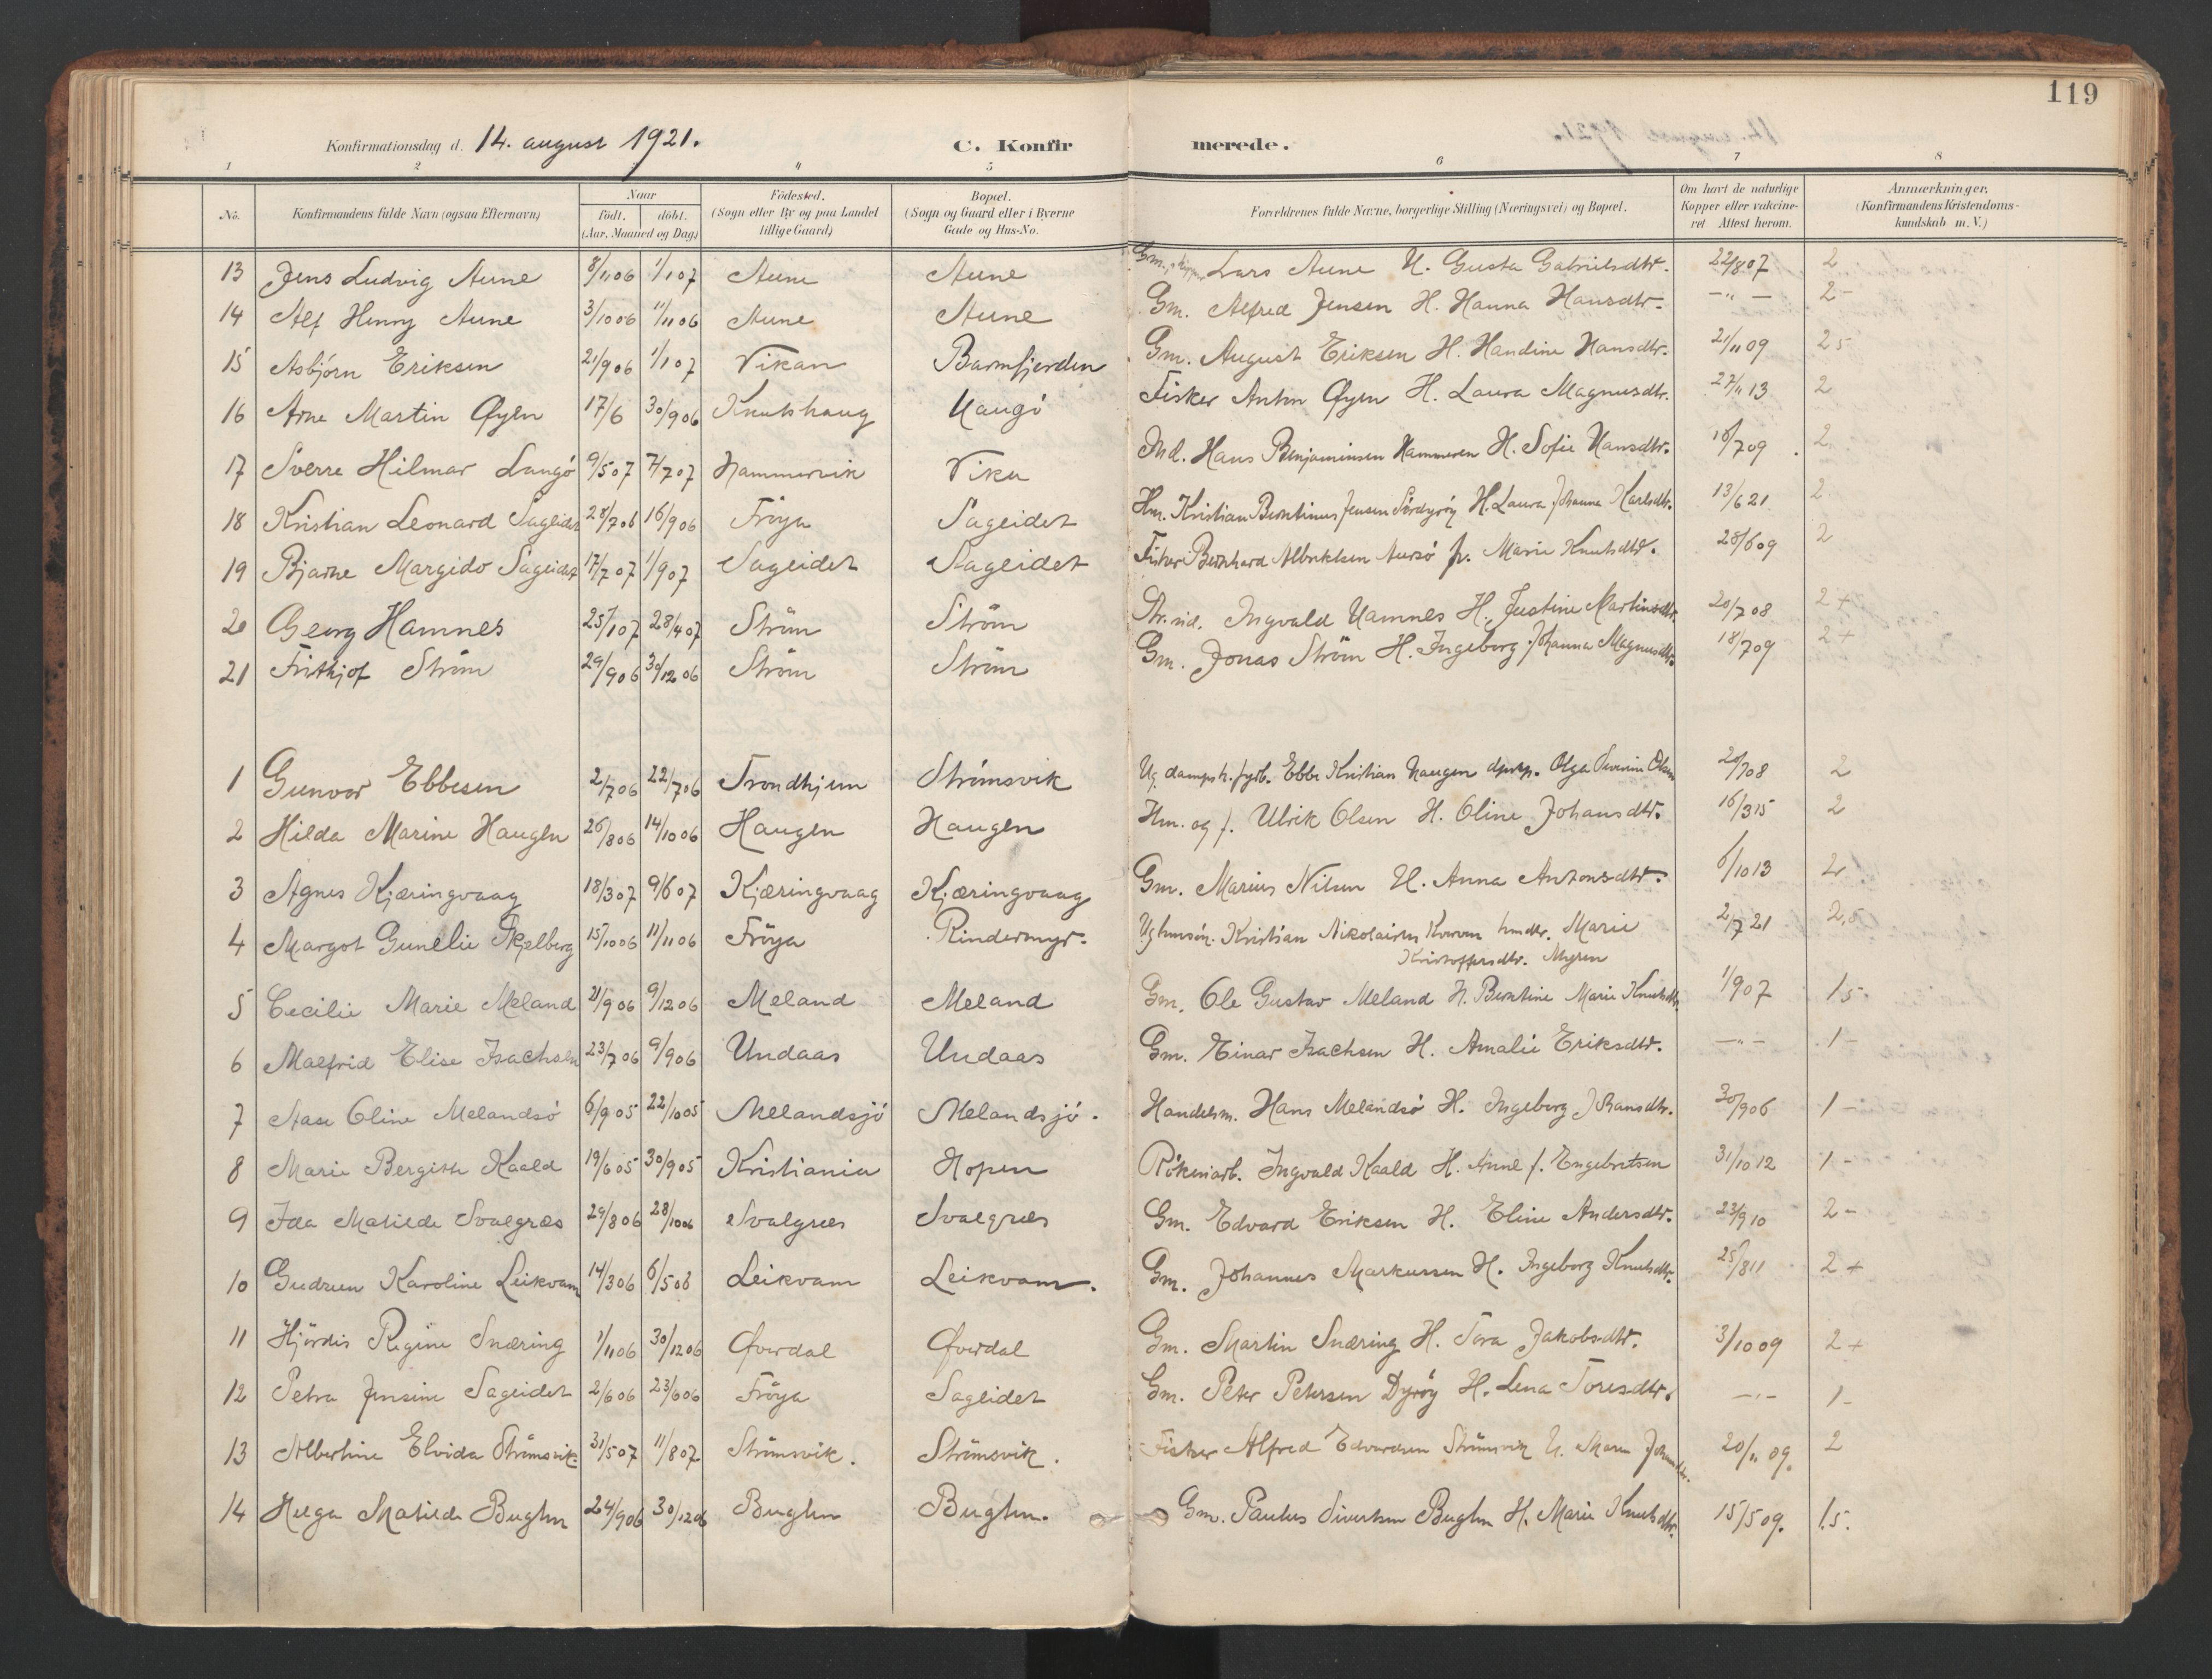 119
Konfirmationsdag d. 14. august 1921. C. Konfir merede.
1 2 3 4 5 6 7 8
No. Konfirmandens fulde Navn (ogsaa Efternavn) Naar födt. döbt. (Aar, Maaned og Dag) Födested. (Sogn eller By og paa Landet tillige Gaard) Bopæl. (Sogn og Gaard eller i Byerne Gade og Hus-No. Forældrenes fulde Navne, borgerlige Stilling (Næringsvei) og Bopæl. Om havt de naturlige Kopper eller vakcineret Attest herom. Anmærkninger. (Konfirmandens Kristendomskundskab m. V.)
13 Jens Ludvig Aune 8/11 06 1/1 07 Aune Aune Gm. Lars Aune H. Gusta Gabrielsdtr. 22/8 07 2
14 Alf Henry Aune 3/10 06 11/11 06 Aune Aune Gm. Alfred Jensen H. Hanna Hansdtr. —"— 2-
15 Asbjörn Eriksen 21/9 06 1/1 07 Vikan Barmfjorden Gm. August Eriksen H. Handine Hansdtr. 21/11 09 2 5
16 Arne Martin Øyen 17/6 30/9 06 Knutshaug Haugö Fisker Anton Øyen H. Laura Magnusdtr. 27/11 13 2
17 Sverre Hilmar Langö 9/5 07 7/7 07 Hammervik Vika Ind. Hans Benjaminsen Hammeren H. Sofie Hansdtr. 18/7 09 2
18 Kristian Leonard Sageidet 28/7 06 16/9 06 Fröya Sageidet Hm. Kristian Berntinus Jensen Sördyröy H. Laura Johanna Karlsdtr. 13/6 21 2
19 Bjarne Margido Sageidet 17/7 07 1/9 07 Sageidet Sageidet Fisker Bernhard Albriktsen Aursö fr. Marie Knutsdtr. 28/6 09 2
20 Georg Hamnes 25/1 07 28/4 07 Ström Ström Str.sid. Ingvald Hamnes H. Justine Martinsdtr. 20/7 08 2+
21 Frithjof Ström 29/9 06 30/12 06 Ström Ström Gm. Jonas Ström H. Ingeborg Johanna Magnusdtr. 18/7 09 2+
1 Gunvor Ebbesen 2/7 06 22/7 06 Trondhjem Strömsvik Ug. dampsk.fyrb. Ebbe Kristian Haugen Olga Severine Olsen 20/7 08 2
2 Hilda Marine Haugen 26/8 06 14/10 06 Haugen Haugen Hm. og f. Ulrik Olsen H. Oline Johansdtr. 16/3 15 2
3 Agnes Kjæringvaag 18/3 07 9/6 07 Kjæringvaag Kjæringvaag Gm. Marius Nilsen H. Anna Antonsdtr. 6/10 13 2
4 Margot Gunelie Skjelberg 15/10 06 11/11 06 Fröya Rindermyr. Ug hmsön. Kristian Nikolaisen hmdtr. Marie
Kristoffersdtr. Myren 2/7 21 2,5
5 Cecilie Marie Meland 21/9 06 9/12 06 Meland Meland Gm. Ole Gustav Meland H. Berntine Marie Knutsdtr. 1/9 07 1,5
6 Malfrid Elise Isachsen 23/7 06 9/9 06 Undaas Undaas Gm. Einar Isachsen H. Amalie Eriksdtr. —"— 1-
7 Aase Oline Melandsö 6/9 05 22/10 05 Melandsjö Melandsjö. Handelsm. Hans Melandsö H. Ingeborg Johansdtr. 30/9 06 1-
8 Marie Bergitte Kaald 19/6 05 30/9 05 Kristiania Hopen Rökeriarb. Ingvald Kaald H. Anne f. Engebretsen 31/10 12 1-
9 Ida Matilde Svalgræs 29/8 06 28/10 06 Svalgræs Svalgræs Gm. Edvard Eriksen H. Eline Andersdtr. 23/9 10 2-
10 Gudrun Karoline Leikvam 14/3 06 6/5 06 Leikvam Leikvam. Gm. Johannes Markussen H. Ingeborg Knutsdtr. 25/8 11 2+
11 Hjördis Regine Snæring 1/11 06 30/12 06 Øverdal Øverdal Gm. Martin Snæring H. Tora Jakobsdtr. 3/10 09 2+
12 Petra Jensine Sageidet 2/6 06 23/6 06 Fröya Sageidet Gm. Peter Petersen Dyröy H. Lena Toresdtr. —"— 1-
13 Albertine Elvida Strömsvik 31/5 07 11/8 07 Strömsvik. Strömsvik. Fisker Alfred Edvardsen Strömsvik H. Maren 20/11 09. 2
14 Helga Matilde Bugten 24/9 06 30/12 06 Bugten Bugten. Gm. Paulus Sivertsen Bugten H. Marie Knutsdtr. 15/5 09. 1,5.